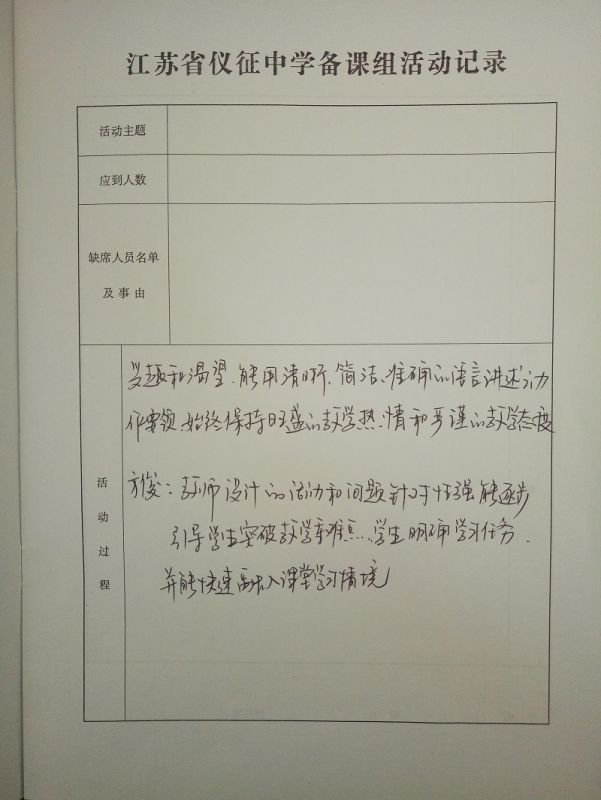 江苏省仪征中学备课组活动记录
活动主题
应到人数
缺席人员名单
及事由
活动过程
趣和渴望、能用清晰、简洁、准确的语言讲述动
作要领 始终保持旺盛的教学热情和严谨的教学态度
方俊：教师设计的活动和问题针对性强能逐步
引导学生突破教学重难点、学生明确学习任务、
并能快速融入课堂学习情境